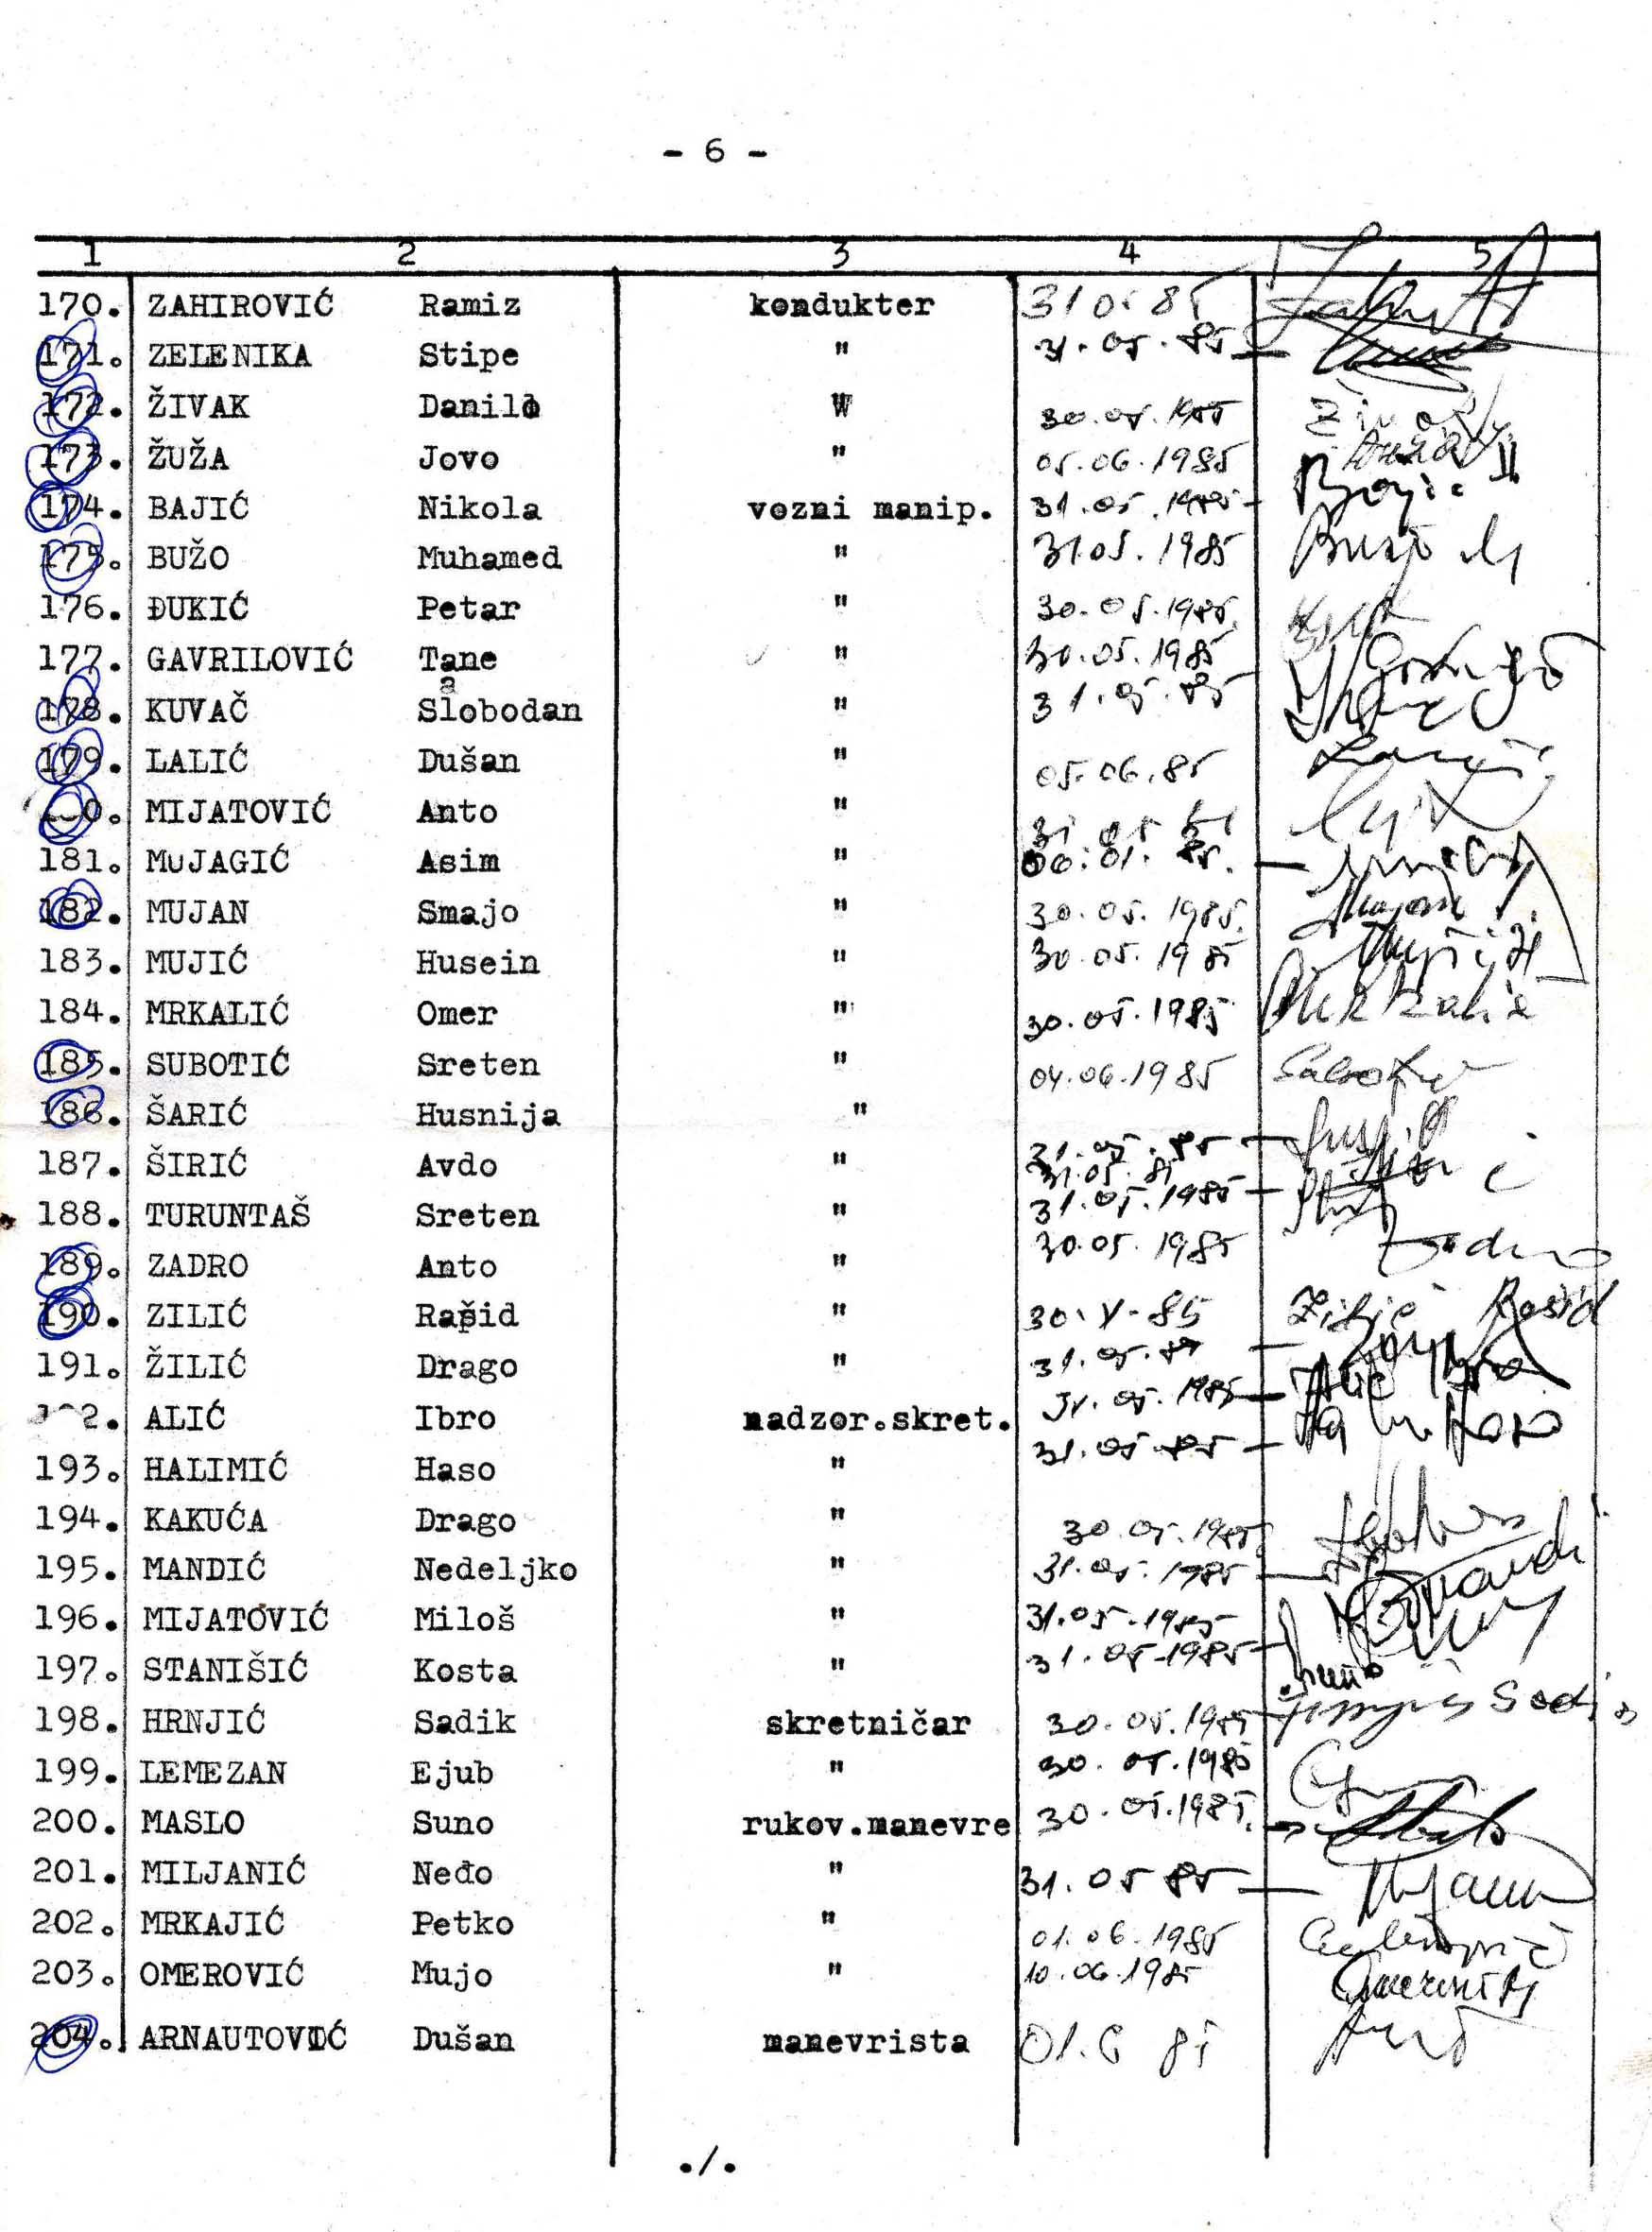 - 6 -
1 2 3 4 5
170. ZAHIROVIĆ Ramiz kondukter 31 05 85
171. ZELENIKA Stipe " 31. 05. 85
172. ŽIVAK Danilo W 30.05.1985
173. ŽUŽA Jovo " 05.06.1985
174. BAJIĆ Nikola vozni manip. 31.05.1985
175. BUŽO Muhamed " 31.05.1985 Bužo M
176. ĐUKIĆ Petar " 30.05.1985.
177. GAVRILOVIĆ Tane " 30.05.1985
a
178. KUVAČ Slobodan " 31.05.85
179. LALIĆ Dušan " 05.06.85
0. MIJATOVIĆ Anto " 31 05
181. MUJAGIĆ Asim " 06.01.85.
182. MUJAN Smajo " 30.05.1985. Mujan S.
183. MUJIĆ Husein " 30.05.1985 Mujić H
184. MRKALIĆ Omer " 30.05.1985
185. SUBOTIĆ Sreten " 04.06.1985
186. ŠARIĆ Husnija " 31.05.85
187. ŠIRIĆ Avdo " 31.05.85
188. TURUNTAŠ Sreten " 31.05.1985
189. ZADRO Anto " 30.05.1985 Zadro
190. ZILIĆ Rašid " 30.V-85 Zilić Rašid
191. ŽILIĆ Drago " 31.05.85
2. ALIĆ Ibro nadzor.skret. 31.05.1985 Alić Ibro
193. HALIMIĆ Haso " 31.05.85
194. KAKUĆA Drago " 30.05.1985
195. MANDIĆ Nedeljko " 31.05.1985
196. MIJATOVIĆ Miloš " 31.05.1985
197. STANIŠIĆ Kosta " 31.05.1985
198. HRNJIĆ Sadik skretničar 30.05.1985
199. LEMEZAN Ejub " 30.05.1985
200. MASLO Suno rukov.manevre 30.05.1985.
201. MILJANIĆ Neđo " 31.05 85
202. MRKAJIĆ Petko " 01.06.1985
203. OMEROVIĆ Mujo " 10.06.1985
204. ARNAUTOVIĆ Dušan manevrista 01.6 85
./.